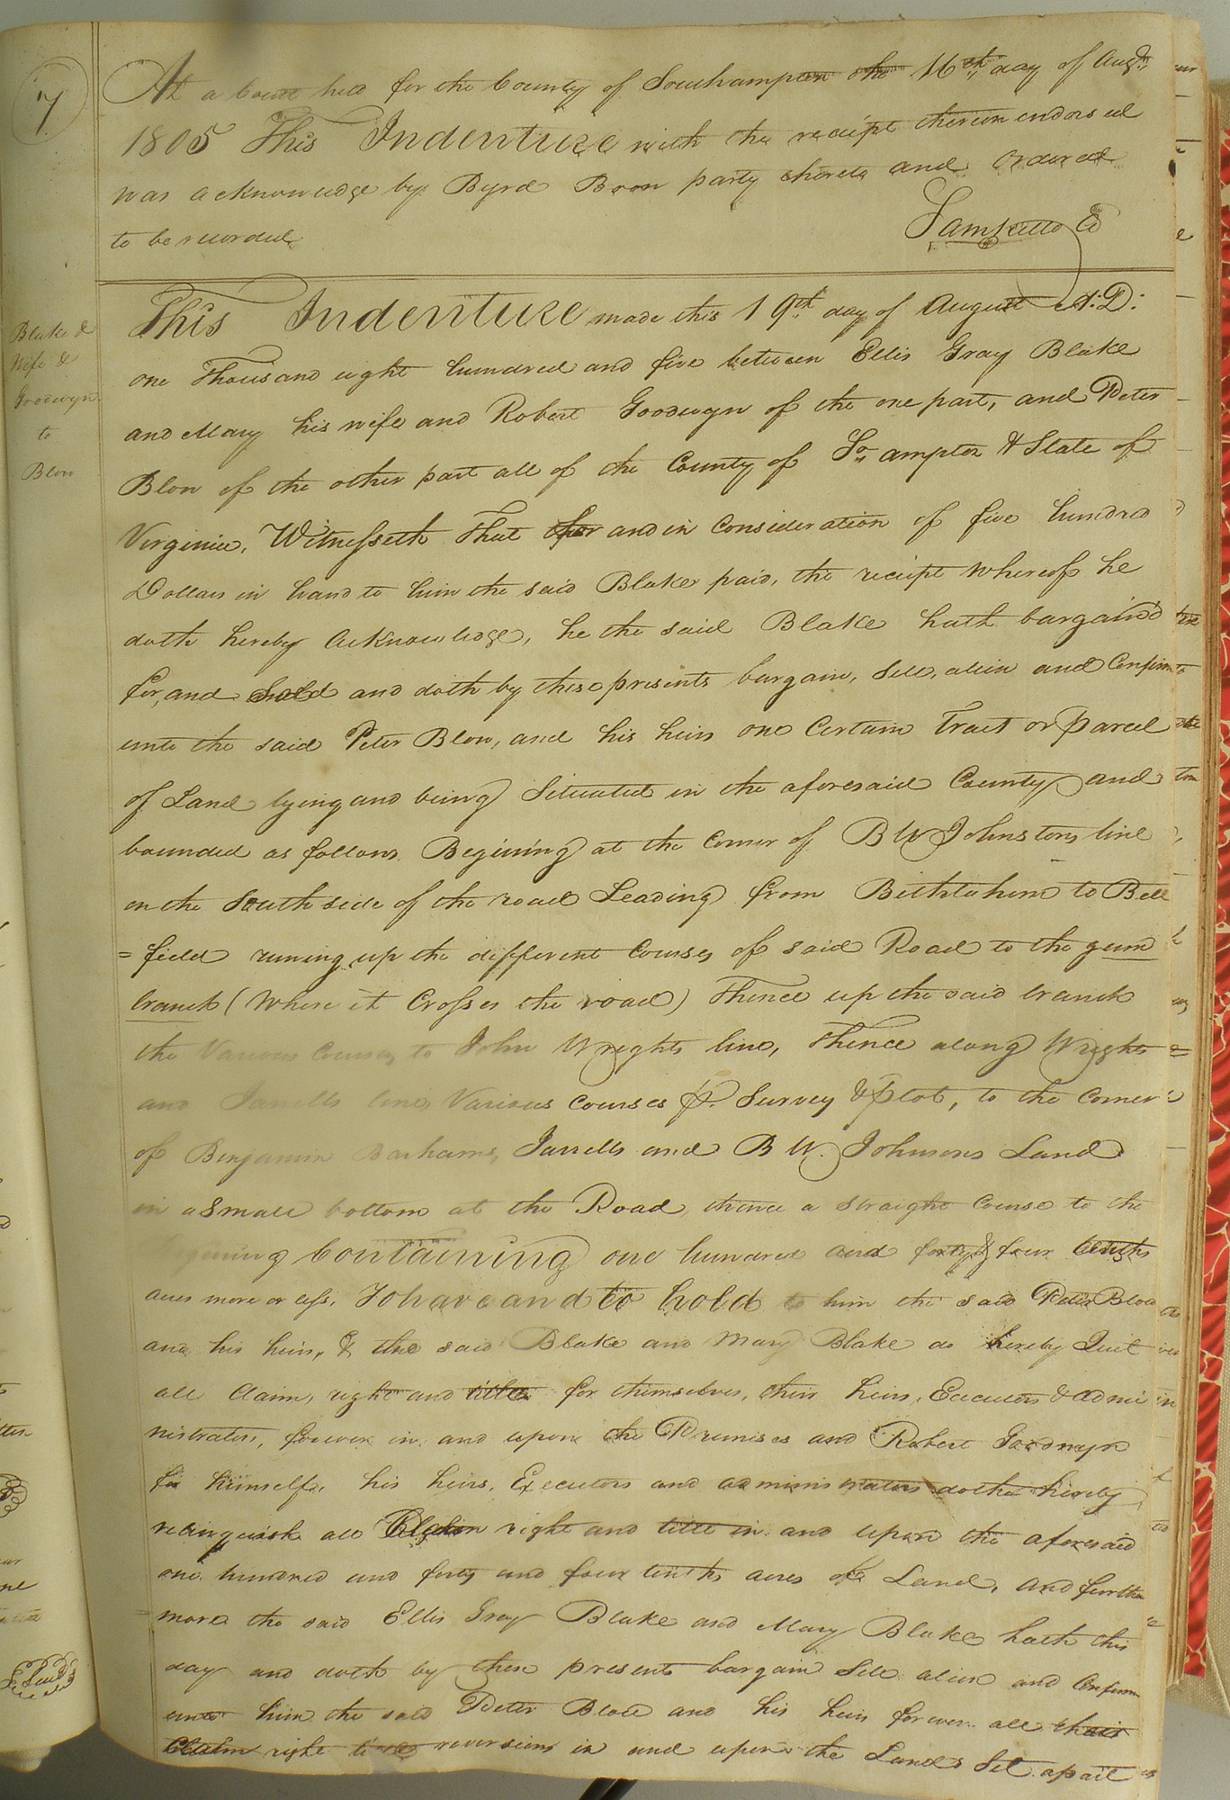 7
At a Court held for the County of Southampton the 16th day of Augt.
1805 This Indenture with the receipt thereon endorsed
was acknowledge by Byrd Bron party thereto and Ordered
to be recorded
Saml Kello C
Blake &
Wife &
Goodwyn
to
Blow
This Indenture made this 19th day of August A:D:
one Thousand eight hundred and five between Ellis Gray Blake
and Mary his wife and Robert Goodwyn of the one part, and Peter
Blow of the other part all of the County of So,ampton & State of
Virginia, Witnesseth That for and in Consideration of five hundred
Dollars in hand to him the said Blake paid, the receipt whereof he
doth hereby Acknowledge, he the said Blake hath bargain'd
for, and Sold and doth by these presents bargain, Sell, alien and Confirm
unto the said Peter Blow, and his heirs one Certain Tract or parcel
of Land lying and being Situated in the aforesaid County and
bounded as follows. Begining at the Corner of B W Johnstons line
on the South side of the road Leading from Bethlehem to Bell
=field runing up the different Courses of said Road to the gum
branch (Where it Crosses the road) Thence up the said branch
the Various Courses to John Wrights line, Thence along Wrights
and Jarrells lines Various Courses pr. Survey & Plot, to the Corner
of Benjamin Barhams, Jarrells and B W. Johnsons Land
in a Small bottom at the Road, thence a straight Course to the
begining Containing one hundred and forty & four tenths
acres more or less, To have and to hold to him the said Peter Blow
and his heirs, & the said Blake and Mary Blake do hereby Quit
all Claim, right and title for themselves, their heirs, Executors & Admi
nistrators, forever in and upon the Premises and Robert Goodwyn
for himself, his heirs, Executors and administrators doth hereby
relinquish all Claim right and title in and upon the aforesaid
one hundred and forty and four tenths acres of Land, And further
more the said Ellis Gray Blake and Mary Blake hath this
day and doth by these presents bargain Sell alien and Confirm
unto him the said Peter Blow and his heirs forever all their
Claim right title reversion in and upon the Lands Set apart